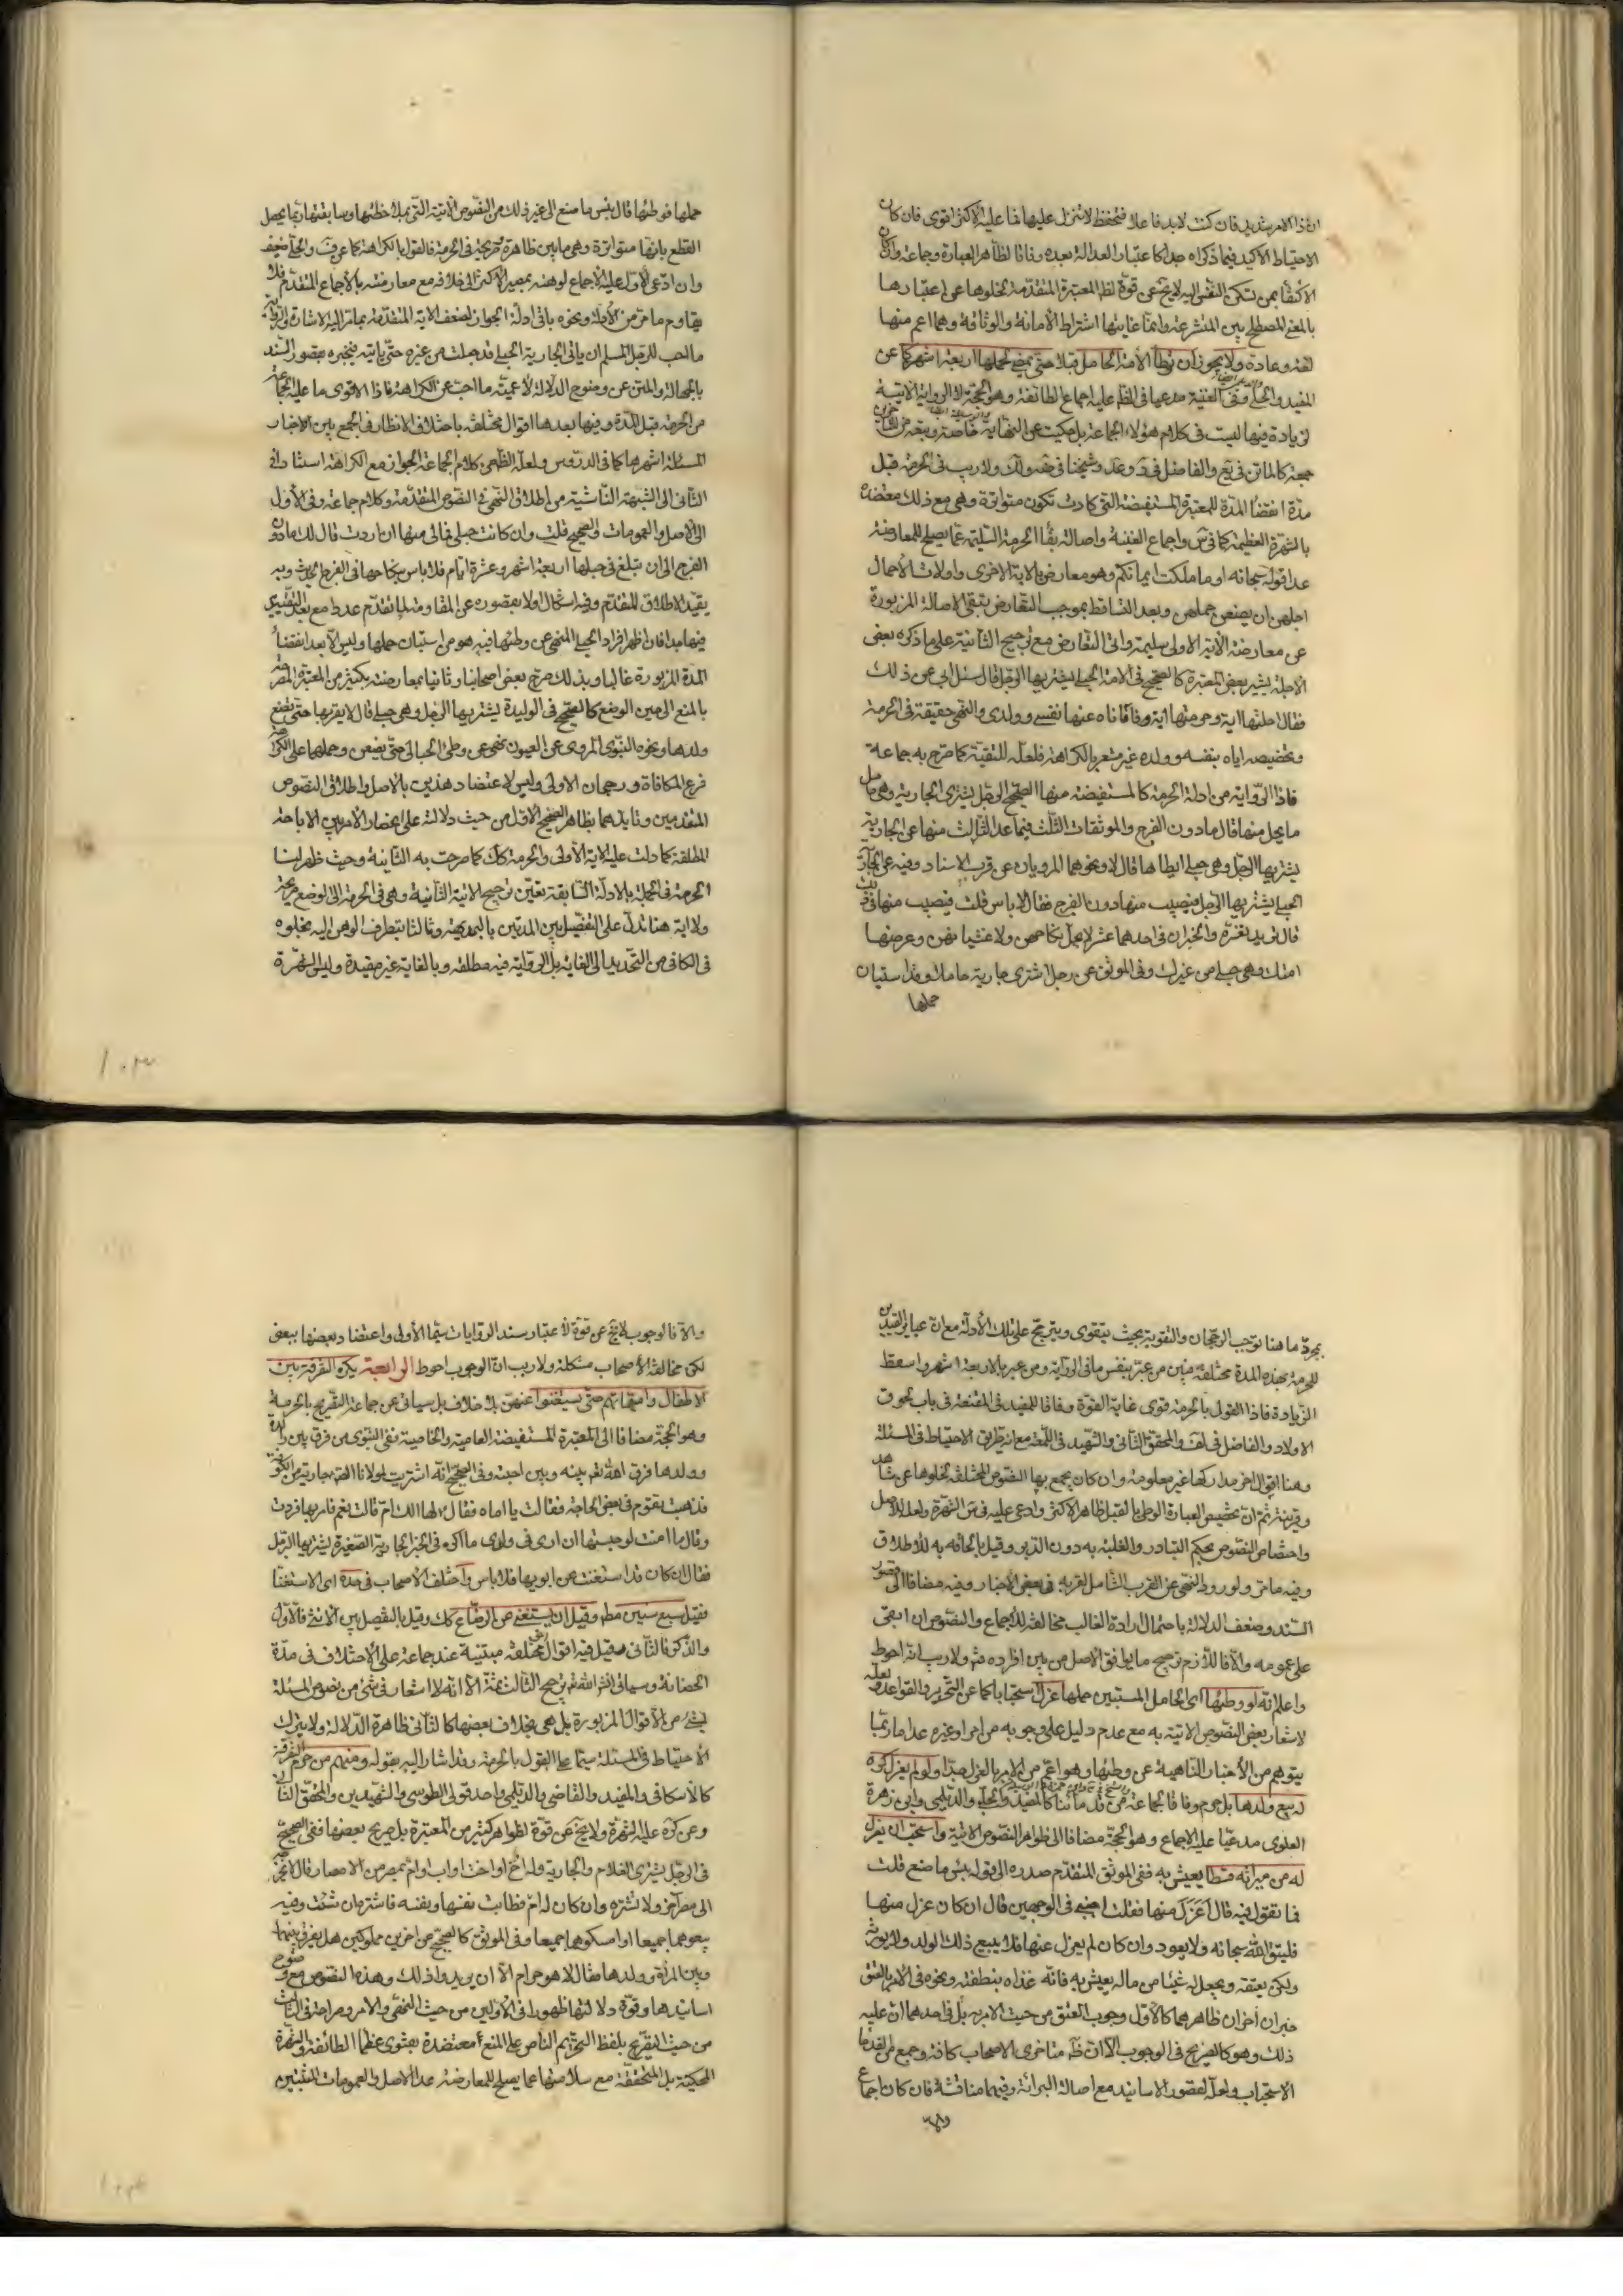 ان ذا الامر شديد فان كنت لابد فاعلا فتحفظ لا تنزل عليها فما عليه الاكثر اقوى فان كان
الاحتياط الاكيد فيما ذكراه جدا كاعتبار العدالة بعده وفاقا لظاهر العبارة وجماعة وان كان
الاكتفاء بمن تسكن النفس اليه لا يخ عن قوة لظ المعتبرة المتقدمة لخلوها عن اعتبارها
بالمعنى المصطلح بين المتشرعة وانما غايتها اشتراط الأمانة والوثاقة وهما اعم منها
لغة وعادة ولا يجوز ان يطأ الأمة الحامل قبلا حتى يمضي لحملها اربعة اشهر كما عن
المفيد والحلي وفي الغنية مدعيا في الظ عليه اجماع الطائفة وهو الحجة لا الرواية الاتية
لزيادة فيها ليست في كلام هؤلاء الجماعة بل حكيت عن النهاية خاصة وتبعه من المتأخرين
جمعة كالماتن في يع والفاضل في د وعد وشيخنا في ضه ولك ولا ريب في الحرمة قبل
مدة انقضاء المدة للمعتبرة المستفيضة التي كادت تكون متواترة وهي مع ذلك معتضدة
بالشهرة العظيمة كما في س واجماع الغنية واصالة بقاء الحرمة السليمة عما يصلح للمعارضة
عدا قوله سبحانه او ما ملكت ايمانكم وهو معارض بالاية الاخرى واولات الأحمال
اجلهن ان يضعن حملهن وبعد التساقط بموجب التعارض تبقى الاصالة المزبورة
عن معارضة الأية الاولى سليمة والى التعارض مع ترجيح الثانية على ما ذكره بعض
الاجلة يشير بعض المعتبرة كالصحيح في الامة الحبلى يشتريها الرجل قال سئل ابي عن ذلك
فقال احلتها اية وحرمتها اية وفاقا ناه عنها نفسي وولدي والنهي حقيقة في الحرمة
وتخصيصه اياه بنفسه وولده غير مشعر بالكراهة فلعله للتقية كما صرح به جماعة
فاذا الرواية من ادلة الحرمة كالمستفيضة منها الصحيح الرجل يشتري الجارية وهي حامل
ما يحل منها قال ما دون الفرج والموثقات الثلث فيما عد الثالث منها عن الجارية
يشتريها الرجل وهي حبلى ايطأها قال لا ونحوهما المرويان عن قرب الاسناد وفيه عن الجارية
الحبلى يشتريها الرجل فيصيب منها دون الفرج فقال لا باس قلت فيصيب منها في ذلك
قال تريد تغرة والخبران في احدهما عشر لا يحل نكاحهن ولا غشيانهن وعد منها
امتك وهي حبلى من غيرك وفي الموثق عن رجل اشترى جارية حاملا وقد استبان
حملها
حملها فوطئها قال بئس ما صنع الى غير ذلك من النصوص الاتية التي بملاحظتها وسابقتها ربما يحصل
القطع بانها متواترة وهي ما بين ظاهرة وصريحة في الحرمة فالقول بالكراهة كما عن ف والحلي ضعيف
وان ادعى الأول عليه الأجماع لوهنه بمصير الأكثر الى خلافه مع معارضته بالأجماع المتقدم فلا
يقاوم ما مر من الأدلة ونحوه باقي ادلة الجواز لضعف الاية المتقدمة بما مر اليه الاشارة والرواية
ما احب للرجل المسلم ان ياتي الجارية الحبلى قد حبلت من غيره حتى ياتيه فيخبره بقصور السند
بالجهالة والمتن عن وضوح الدلالة لأعمية ما احب عن الكراهة فاذا الاقوى ما عليه الجماعة
من الحرمة قبل المدة وفيها بعدها اقوال مختلفة باختلاف الانظار في الجمع بين الاخبار
المسئلة اشهرها كما في الدروس ولعله الظ من كلام الجماعة الجواز مع الكراهة استنادا في
الثاني الى الشبهة الناشئة من اطلاق النهي في النصوص المتقدمة وكلام جماعة وفي الأول
الى الأصل والعمومات والصحيح قلت وان كانت حبلى فما لي منها ان اردت قال لك ما دون
الفرج الى ان تبلغ في حبلها اربعة اشهر وعشرة ايام فلا باس بنكاحها في الفرج الحديث وبه
يقيد الاطلاق المتقدم وفيه اشكال اولا بقصوره عن المقاومة لما تقدم عددا مع بعد التقييد
فيها جدا فان اظهر افراد الحبلى المنهي عن وطئها فيه هو من استبان حملها وليس الا بعد انقضاء
المدة المزبورة غالبا وبذلك صرح بعض اصحابنا وثانيا بمعارضته بكثير من المعتبرة المصرحة
بالمنع الى حين الوضع كالصحيح في الوليدة يشتريها الرجل وهي حبلى قال لا يقربها حتى تضع
ولدها ونحوه النبوي المروي عن العيون نهى عن وطئ الحبالى حتى يضعن وحملهما على الكراهة
فرع المكافاة ورجحان الاولى وليس لاعتضاد هذين بالاصل واطلاق النصوص
المتقدمين وتايدهما بظاهر الصحيح الاول من حيث دلالته على انحصار الأمر بين الاباحة
المطلقة كما دلت عليه الاية الأولى والحرمة كك كما صرحت به الثانية وحيث ظهر لنا
الحرمة في الجملة بالادلة السابقة تعين ترجيح الاية الثانية وهي في الحرمة الى الوضع صريحة
ولا اية هنا تدل على التفصيل بين المدتين بالبديهة وثالثا بتطرف الوهن اليه بخلوه
في الكافي من التحديد الى الغاية بل الرواية فيه مطلقة وبالغاية غير مقيدة وليس الشهرة
بمجرد ما هنا توجب الرجحان والتقوية بحيث يتقوى ويترجح على تلك الأدلة مع ان عبائر القيدين
للحرمة بهذه المدة مختلفة فبين من عبر بنفس ما في الرواية ومن عبر بالاربعة اشهر واسقط
الزيادة فاذا القول بالحرمة قوى غاية القوة وفاقا للمفيد في المقنعة في باب لحوق
الاولاد والفاضل في لف والمحقق الثاني والشهيد في اللمعة مع انه طريق الاحتياط في المسئلة
وهنا اقوال اخر مداركها غير معلومة وان كان يجمع بها النصوص المختلفة لخلوها عن شاهد
وقرينة ثم ان تخصيص العبارة الوطئ بالقبل ظاهر الاكثر وادعى عليه في س الشهرة ولعله للاصل
واختصاص النصوص بحكم التبادر والغلبة به دون الدبر وقيل بالحاقه به للأطلاق
وفيه ما مر ولورود النهي عن القرب الشامل لقربه في بعض الأخبار وفيه مضافا الى قصور
السند وضعف الدلالة باحتمال ارادة الغالب مخالفته للأجماع والنصوص ان ابقى
على عمومه والا فاللازم ترجيح ما يوافق الاصل من بين افراده منه ولا ريب انه احوط
واعلم انه لو وطئها اى الحامل المستبين حملها عزل استحبابا كما عن التحرير والقواعد ولعله
لاشعار بعض النصوص الاتية به مع عدم دليل على وجوبه من امر او غيره عدا ما ربما
يتوهم من الأخبار الناهية عن وطئها وهو اعم من الامر بالعزل جدا ولو لم يعزل كره
له بيع ولدها بل حرم وفاقا لجماعة من قدمائنا كالمفيد والحلي والديلمي وابن زهرة
العلوى مدعيا عليه الاجماع وهو الحجة مضافا الى ظواهر النصوص الاتية واستحب ان يعزل
له من ميراثه قسطا يعيش به ففي الموثق المتقدم صدره الى قوله بئس ما صنع قلت
فما تقول فيه قال أعزل منها فقلت اجبني في الوجهين قال ان كان عزل منها
فليتق الله سبحانه ولا يعود وان كان لم يعزل عنها فلا يبيع ذلك الولد ولا يورثه
ولكن يعتقه ويجعل له شيئا من ماله يعيش به فانه غذاه بنطفته ونحوه في الامر بالعتق
خبران اخران ظاهرهما كالأول وجوب العتق من حيث الامر به بل في احدهما ان عليه
ذلك وهو كالصريح في الوجوب الا ان ظ متاخري الاصحاب كافة وجمع من القدماء
الاستحباب ولعله لقصور الاسانيد مع اصالة البرائة وفيهما مناقشة فان كان اجماع
والا
والا فالوجوب لا يخ عن قوة لاعتبار سند الروايات سيما الأولى واعتضاد بعضها ببعض
لكن مخالفة الأصحاب مشكلة ولا ريب ان الوجوب احوط الرابعة يكره التفرقة بين
الاطفال وامهاتهم حتى يستغنوا عنهن بلا خلاف بل سياتي عن جماعة التصريح بالحرمة
وهو الحجة مضافا الى المعتبرة المستفيضة العامية والخاصية ففي النبوي من فرق بين والدة
وولدها فرق الله تعم بينه وبين احبته وفي الصحيح انه اشتريت لمولانا الصم جارية من الكوفة
فذهبت بقوم في بعض الحاجة فقالت يا اماه فقال لها الك ام قالت نعم فامر بها فردت
وقال ما امنت لو حبستها ان ارى في ولدى ما اكره في الخبر الجارية الصغيرة يشتريها الرجل
فقال ان كان قد استغنت عن ابويها فلا باس واختلف الأصحاب في حده اى الاستغناء
فقيل سبع سنين مطه وقيل ان يستغنى عن الرضاع كك وقيل بالتفصيل بين الانثى فالأول
والذكر فالثاني وقيل فيه اقوال اخر مختلفة مبتنية عند جماعة على الأختلاف في مدة
الحضانة وسياتي انشر الله تعم ترجيح الثالث ثمة الا انه لا اشعار في شئ من نصوص المسئلة
بشئ من الأقوال المزبورة بل هي بخلاف بعضها كالثاني ظاهرة الدلالة ولا يترك
الأحتياط في المسئلة سيما على القول بالحرمة وقد اشار اليه بقوله ومنهم من حرم التفرقة
كالأسكافي والمفيد والقاضي والديلمي واحد قولي الطوسي والشهيدين والمحقق الثاني
وعن كره عليه الشهرة ولا يخ عن قوة لظواهر كثير من المعتبرة بل صريح بعضها ففي الصحيح
في الرجل يشتري الغلام والجارية وله اخ او اخت او اب او ام بمصر من الامصار قال لا يخرجه
الى مصر آخر ولا تشتره وان كان له ام فطابت نفسها ونفسه فاشتره ان شئت وفيه
بيعوهما جميعا او امسكوهما جميعا وفي الموثق كالصحيح عن اخوين مملوكين هل يفرق بينهما
وبين المرأة وولدها فقال لا هو حرام الا ان يريدوا ذلك وهذه النصوص مع وضوح
اسانيدها وقوة دلالتها ظهورا في الأولين من حيث النهي والامر وصراحة في الثالث
من حيث التصريح بلفظ التحريم الناص على المنع معتضدة بفتوى عظماء الطائفة والشهرة
المحكية بل المتحققة مع سلامتها عما يصلح للمعارضة عدا الأصل والعمومات المثبتين
١٠٣